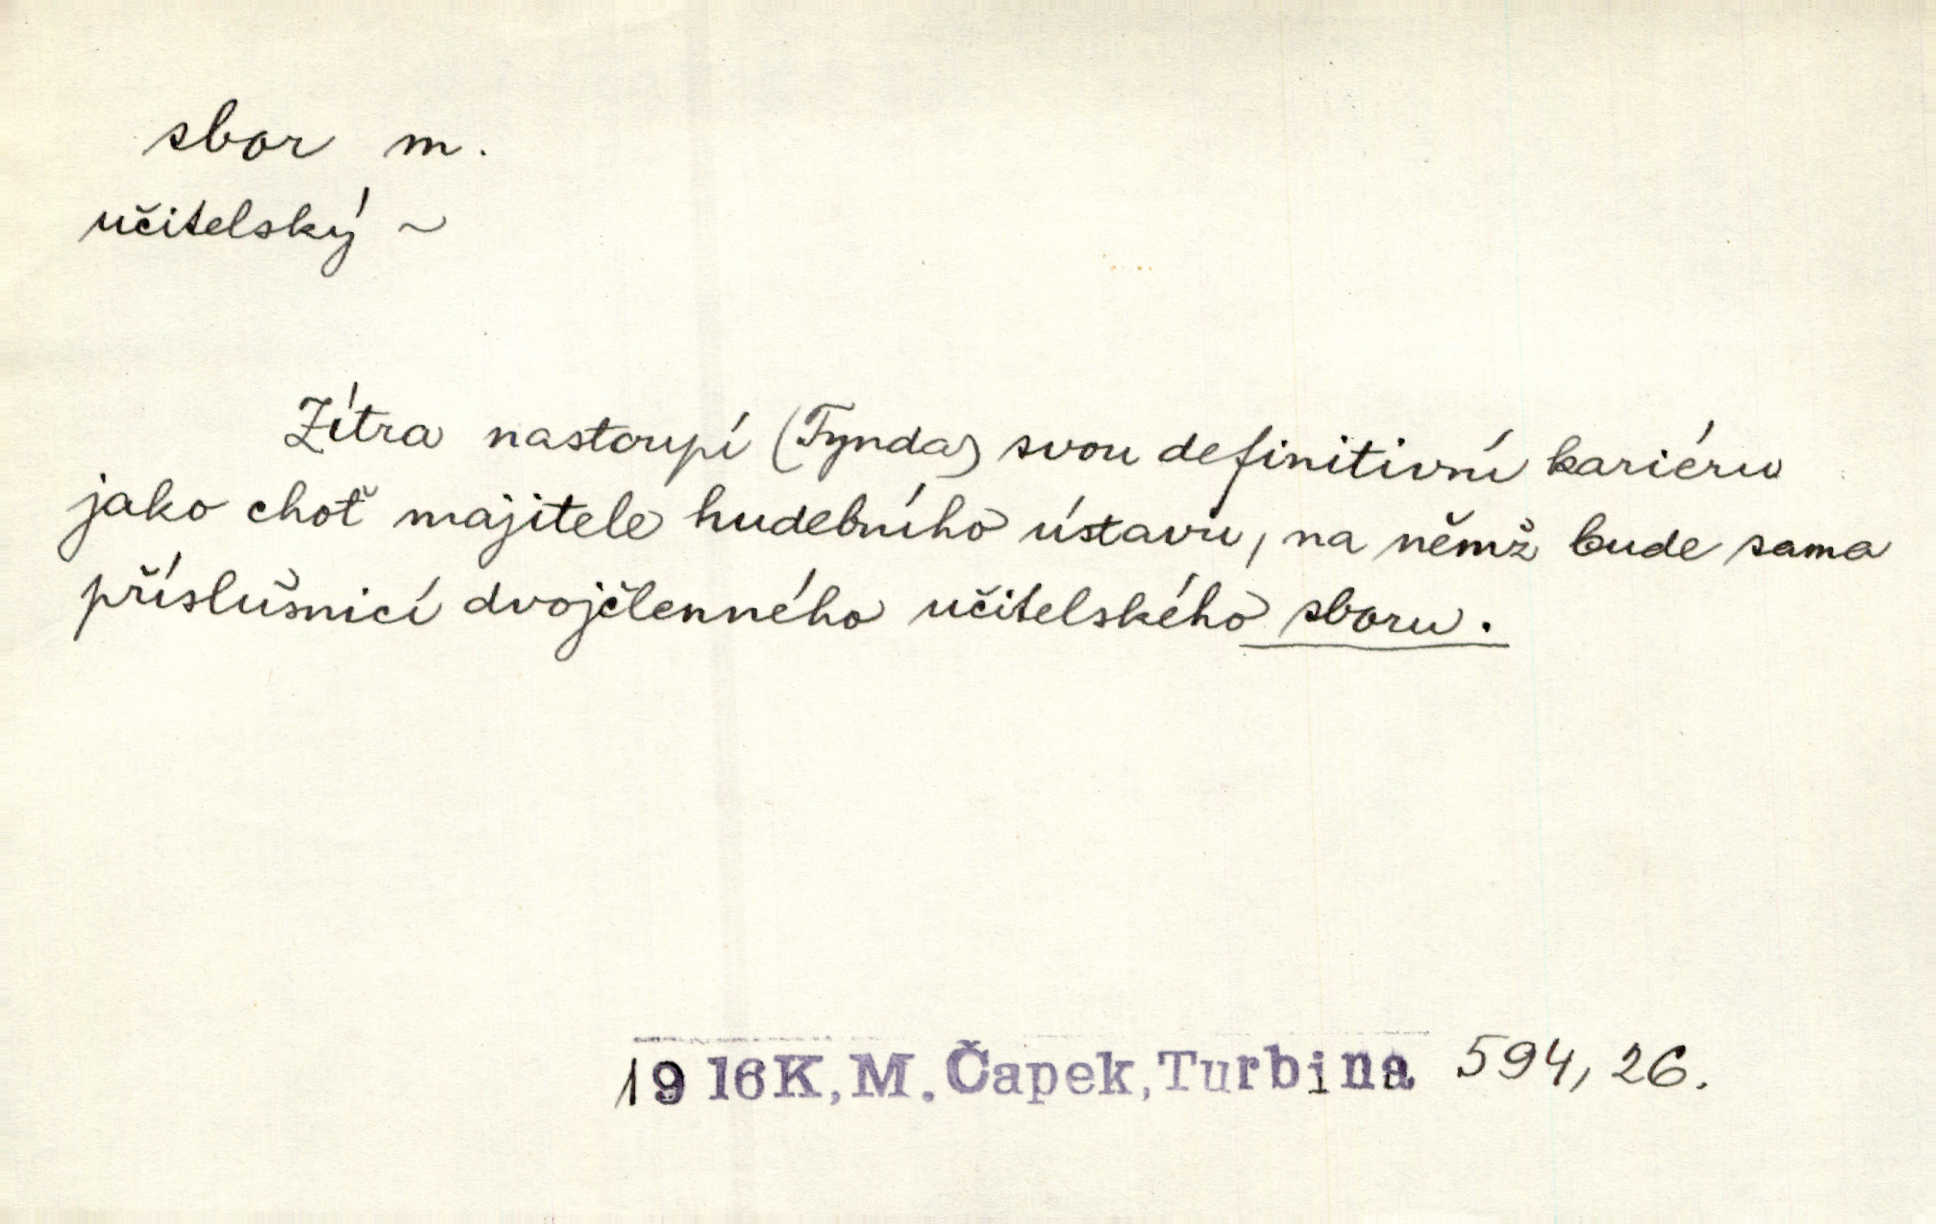 sbor m.
učitelský ~
Zítra nastoupí (Tynda) svou definitivní kariéru
jako choť majitele hudebního ústavu, na němž bude sama
příslušnicí dvojčlenného učitelského sboru.
1916 K. M. Čapek, Turbina 594, 26.